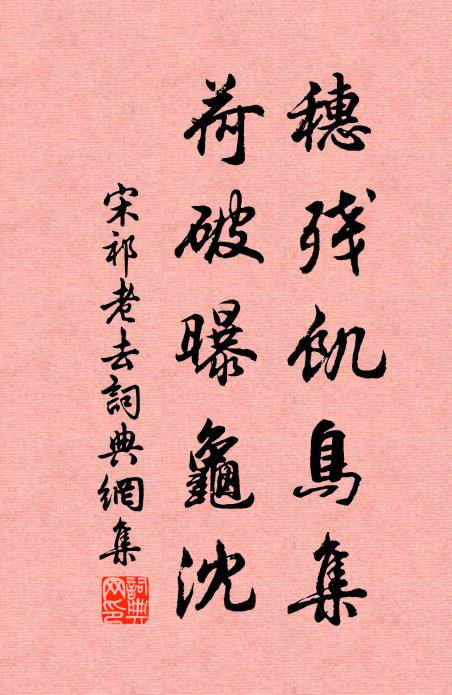 穗残飢鳥集
荷破曝龜沈
宋祁老去詞典網集
詞典网印